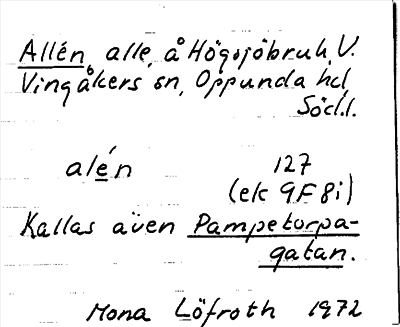 Allén, alle, å Högsjöbruk, V.
Vingåkers sn, Oppunda hd,
Södl.
alén 127
(ek 9F8i)
Kallas även Pampetorpa-
gatan.
Mona Löfroth 1972